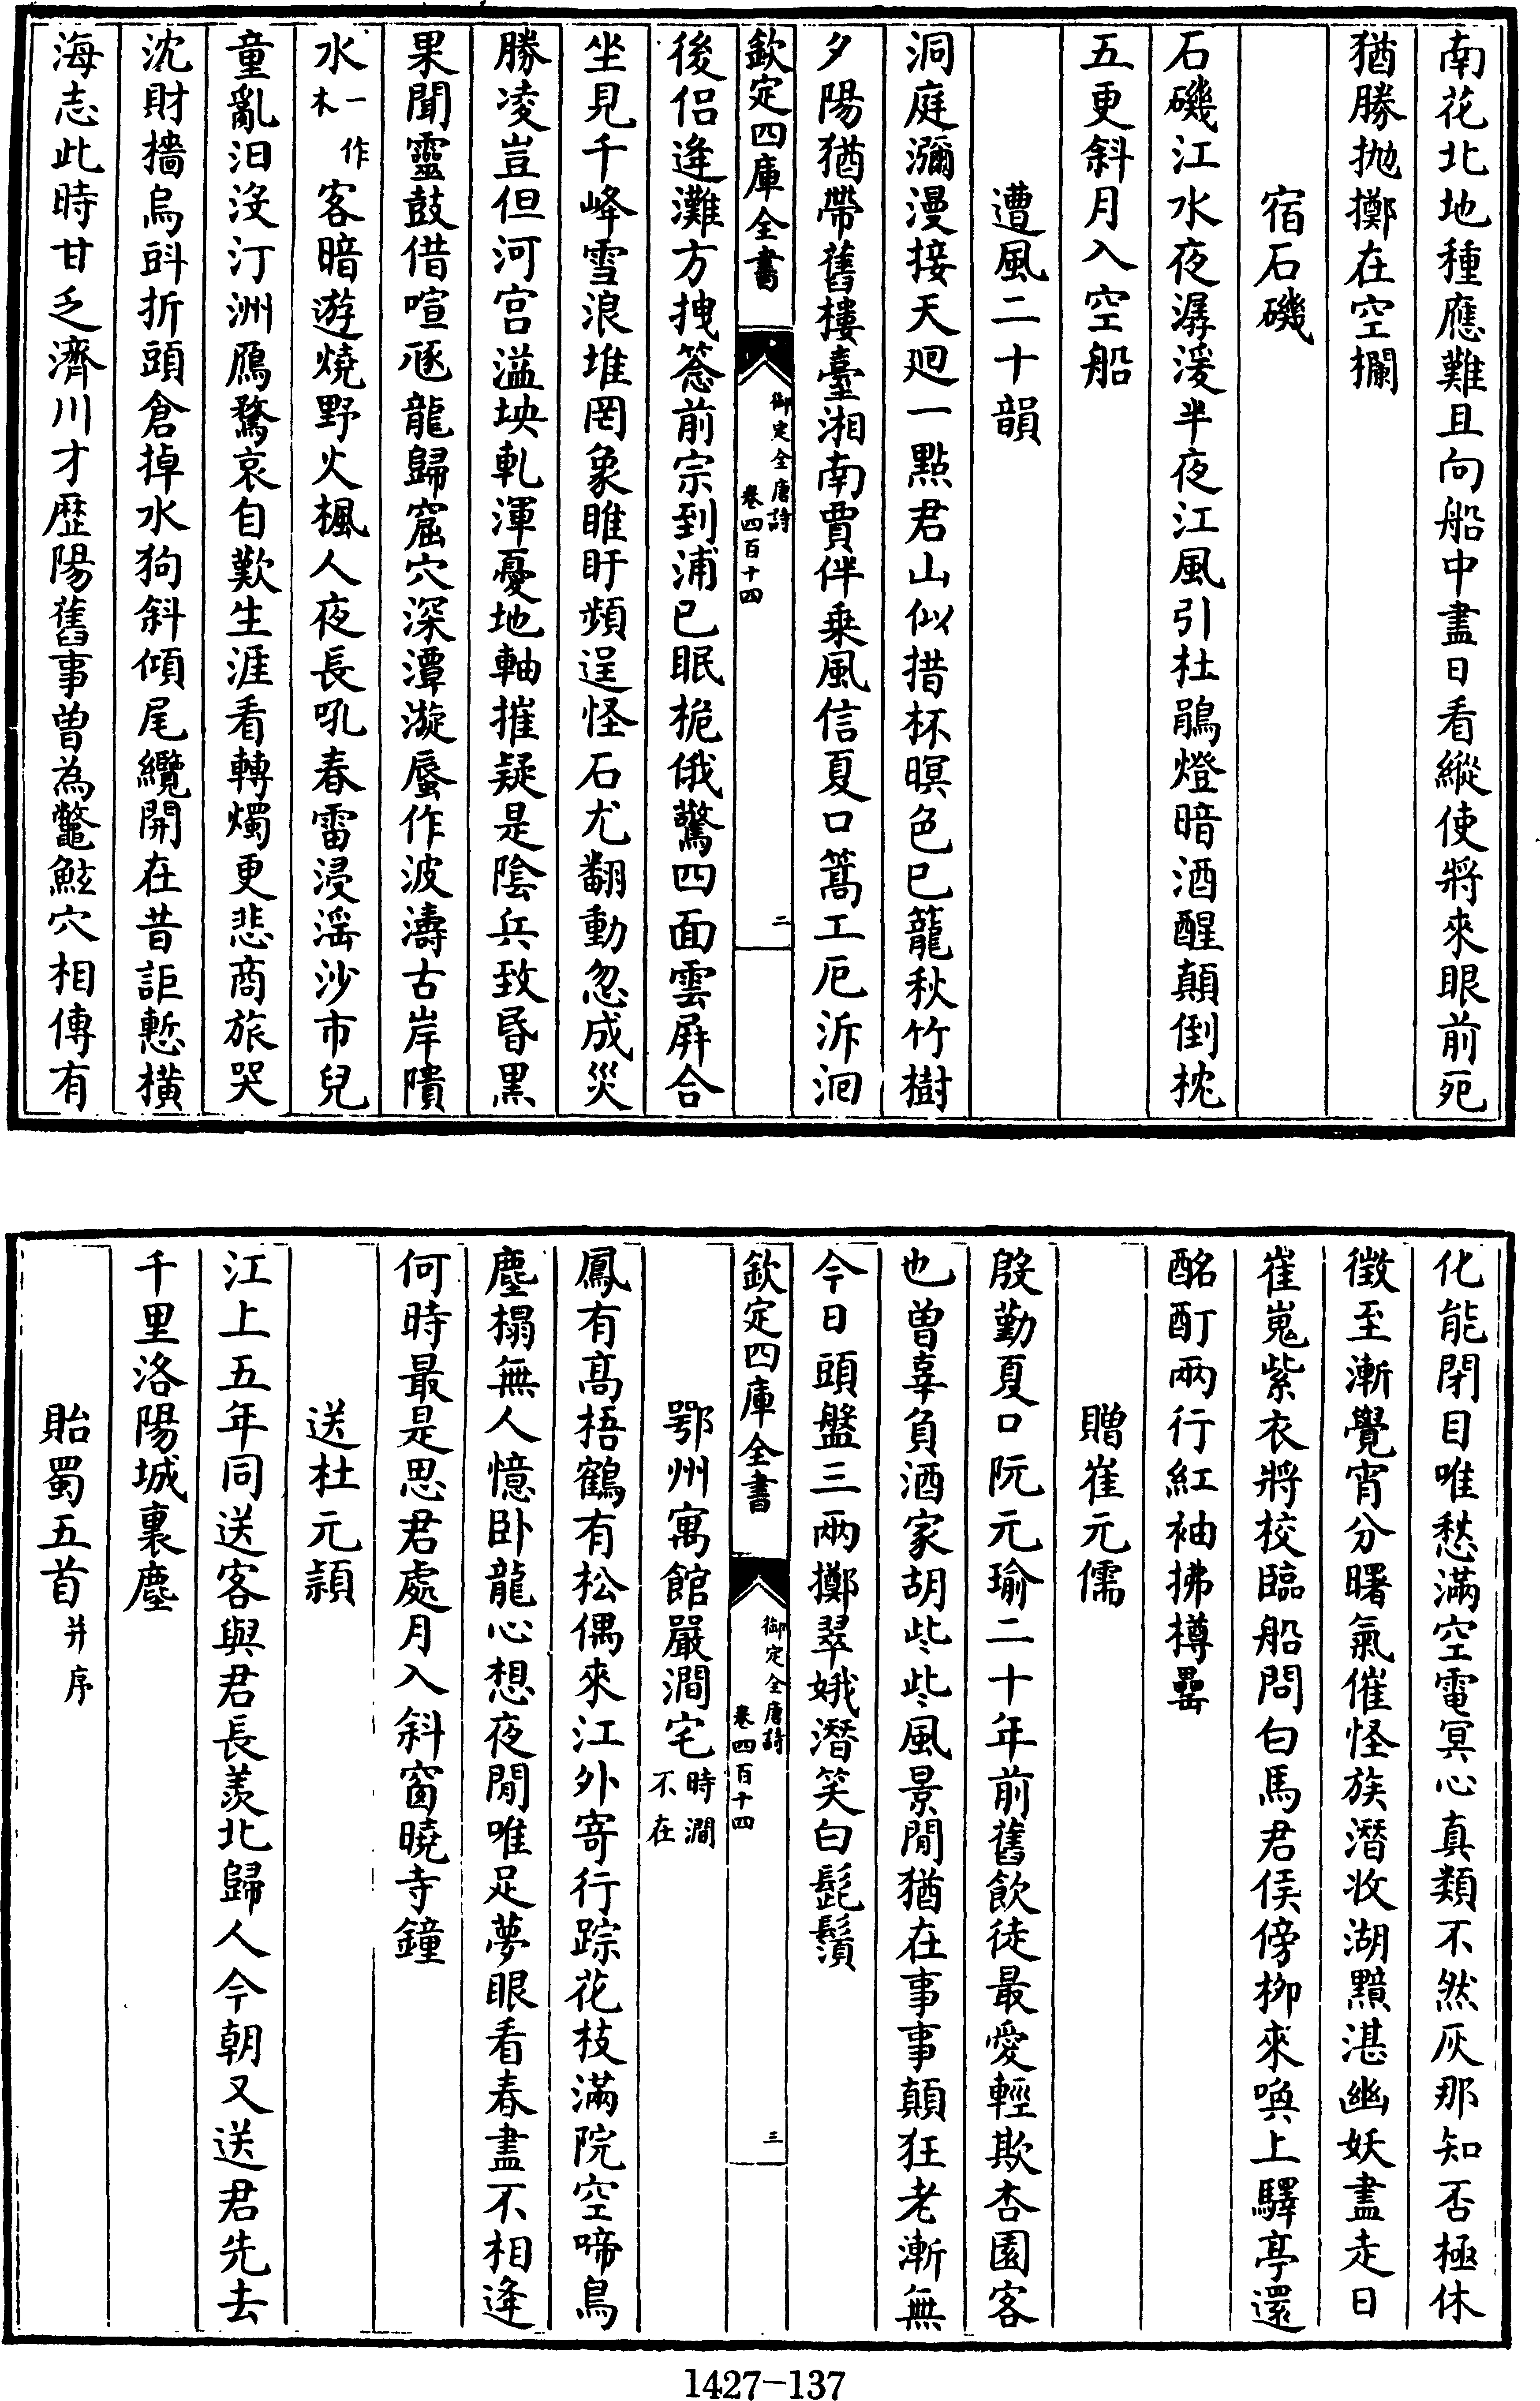 南花北地種應難且向船中盡日看縱使將來眼前死
猶勝抛擲在空欄
宿石磯
石磯江水夜潺湲半夜江風引杜鵑燈暗酒醒顛倒枕
五更斜月入空船
遭風二十韻
洞庭瀰漫接天廻一點君山似措杯暝色已籠秋竹樹
夕陽猶帶舊樓臺湘南賈伴乗風信夏口篙工厄泝洄
欽定四庫全書
御定全唐詩
卷四百十四
二
後侣逄灘方拽䇶前宗到浦已眠桅俄驚四面雲屏合
坐見千峰雪浪堆罔象睢盱頻逞怪石尤翻動忽成災
勝凌豈但河宫溢坱軋渾憂地軸摧疑是陰兵致昏黒
果聞靈鼓借喧豗龍歸窟穴深潭漩蜃作波濤古岸隤
水一作木客暗遊燒野火楓人夜長吼春雷浸滛沙市兒
童亂汨没汀洲鴈鶩哀自歎生涯看轉燭更悲商旅哭
沈財檣烏㪷折頭倉掉水狗斜傾尾纜開在昔詎慙横
海志此時甘乏濟川才歴陽舊事曽為鼈鮌穴相傳有
化能閉目唯愁滿空電冥心真類不然灰那知否極休
徴至漸覺宵分曙氣催怪族潛收湖黯湛幽妖盡走日
崔嵬紫衣將校臨船問白馬君侯傍栁來喚上驛亭還
酩酊兩行紅袖拂樽罍
贈崔元儒
殷勤夏口阮元瑜二十年前舊飲徒最愛輕欺杏園客
也曽辜負酒家胡些些風景閒猶在事事顛狂老漸無
今日頭盤三兩擲翠娥潛笑白髭鬚
欽定四庫全書
御定全唐詩
卷四百十四
三
鄂州寓館嚴澗宅時澗不在
鳳有髙梧鶴有松偶來江外寄行踪花枝滿院空啼鳥
塵榻無人憶卧龍心想夜閒唯足夢眼看春盡不相逄
何時最是思君處月入斜窗曉寺鐘
送杜元頴
江上五年同送客與君長羨北歸人今朝又送君先去
千里洛陽城裏塵
貽蜀五首并序
1427-137